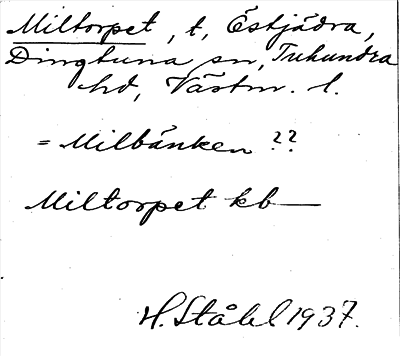 Miltorpet, t, Östjädra,
Dingtuna sn, Tuhundra
hd, Västm. l.
= Milbänken ??
Miltorpet kb —
H. Ståhl 1937.